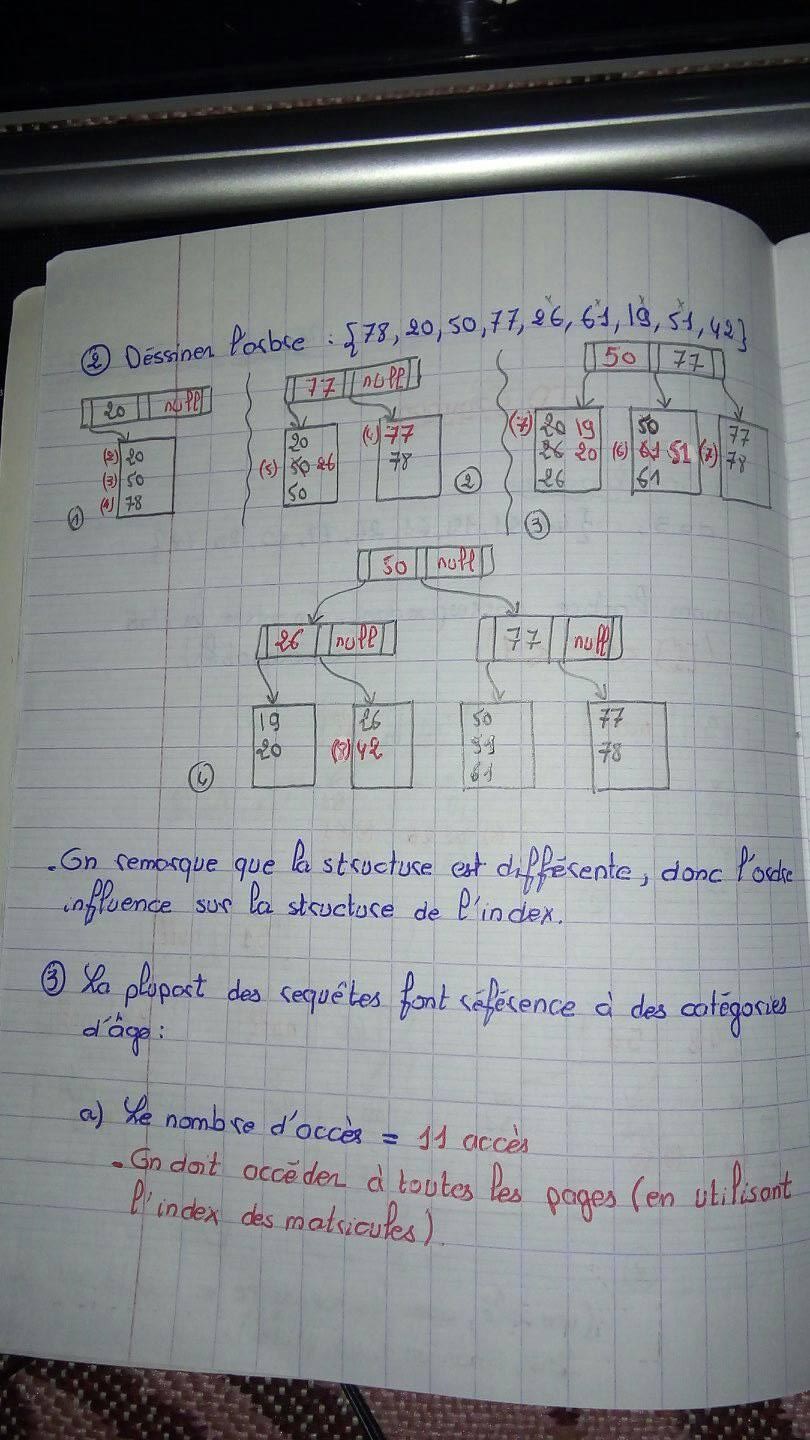 ② Déssiner l'arbre : {78, 20, 50, 77, 26, 61, 19, 51, 42}
20 null
(2) 20
(3) 50
(4) 78
①
77 null
20
(5) 50 26
50
(4) 77
78
②
50 77
(7) 20 19
26 20
26
50
(6) 61 51
61
(7) 77
78
③
50 null
26 null
77 null
19
20
26
(8) 42
50
51
61
77
78
④
. On remarque que la structure est différente, donc l'ordre
influence sur la structure de l'index.
③ La plupart des requêtes font référence à des catégories
d'âge :
a) Le nombre d'accès = 11 accès
. On doit accéder à toutes les pages (en utilisant
l'index des matricules).